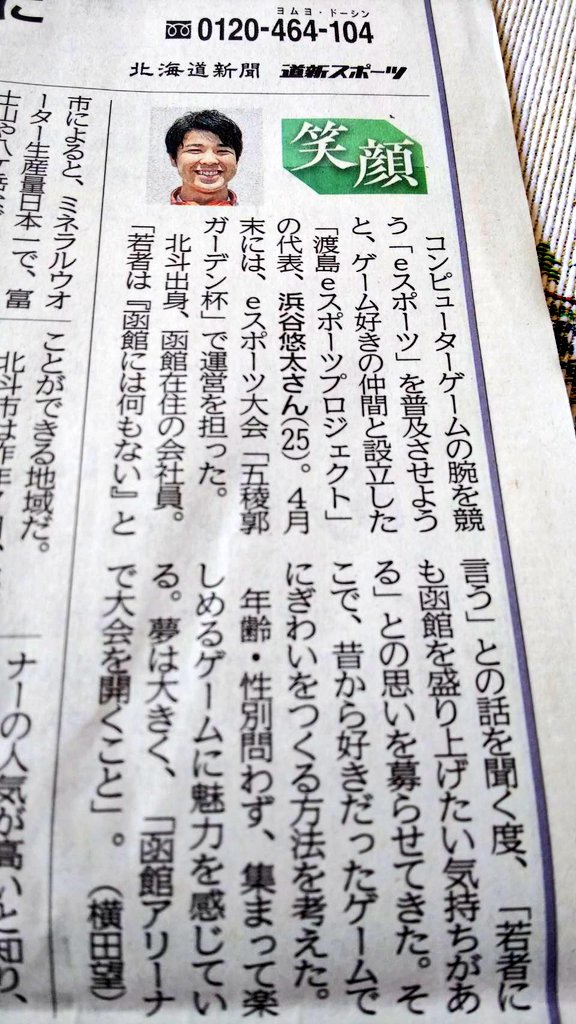 に
ヨムヨ・ドーシン
0120-464-104
北海道新聞 道新スポーツ
笑顔
コンピューターゲームの腕を競
う「eスポーツ」を普及させよう
と、ゲーム好きの仲間と設立した
「渡島eスポーツプロジェクト」
の代表、浜谷悠太さん(25)。4月
末には、eスポーツ大会「五稜郭
ガーデン杯」で運営を担った。
北斗出身、函館在住の会社員。
「若者は『函館には何もない』と
言う」との話を聞く度、「若者に
も函館を盛り上げたい気持ちがあ
る」との思いを募らせてきた。そ
こで、昔から好きだったゲームで
にぎわいをつくる方法を考えた。
年齢・性別問わず、集まって楽
しめるゲームに魅力を感じてい
る。夢は大きく、「函館アリーナ
で大会を開くこと」。(横田望)
市によると、ミネラルウオ
ーター生産量日本一で、富
士山や八ケ岳
ことができる地域だ。
北斗市は昨年
ナーの人気が高いと知り、